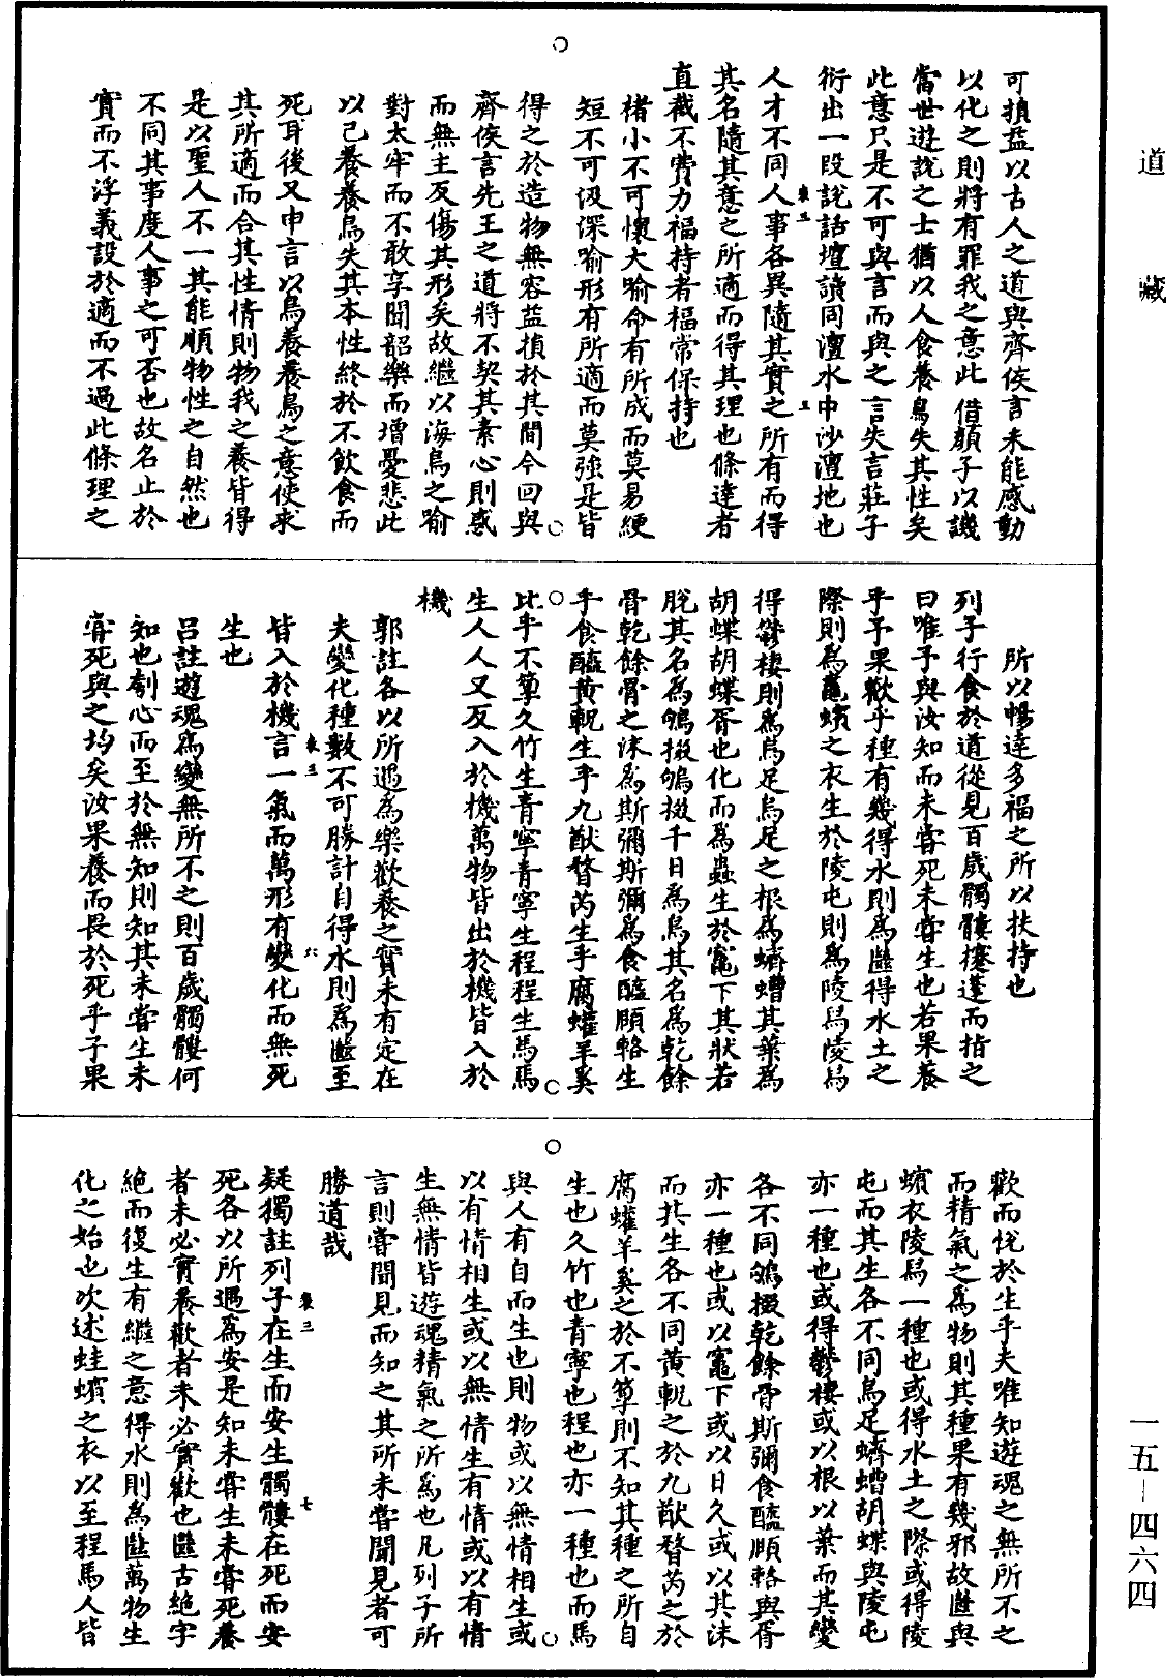 道藏
可損益以古人之道與齊侯言未能感動
以化之則將有罪我之意此借顏子以譏
當世遊說之士猶以人食養鳥失其性矣
此意只是不可與言而與之言失言莊子
衍出一段說話壇讀同澶水中沙澶地也
人才不同人事各異隨其實之所有而得
其名隨其意之所適而得其理也條達者
直截不費力福持者福常保持也
褚小不可懷大喻命有所成而莫易綆
短不可汲深喻形有所適而莫強是皆
得之於造物無容益損於其間今回與
齊侯言先王之道將不契其素心則惑
而無主反傷其形矣故繼以海鳥之喻
對太牢而不敢享聞韶樂而增憂悲此
以己養養鳥失其本性終於不飲食而
死耳後又申言以鳥養養鳥之意使求
其所適而合其性情則物我之養皆得
是以聖人不一其能順物性之自然也
不同其事度人事之可否也故名止於
實而不浮義設於適而不過此條理之
所以暢達多福之所以扶持也
列子行食於道從見百歲髑髏攓蓬而指之
曰唯予與汝知而未嘗死未嘗生也若果養
乎予果歡乎種有幾得水則為㡭得水土之
際則為鼃蠙之衣生於陵屯則為陵舄陵舄
得鬱棲則為烏足烏足之根為蠐螬其葉為
胡蝶胡蝶胥也化而為蟲生於竈下其狀若
脫其名為鴝掇鴝掇千日為鳥其名為乾餘
骨乾餘骨之沫為斯彌斯彌為食醯頤輅生
乎食醯黃軦生乎九猷瞀芮生乎腐蠸羊奚
比乎不箰久竹生青寧青寧生程程生馬馬
生人人又反入於機萬物皆出於機皆入於
機
郭註各以所遇為樂歡養之實未有定在
夫變化種數不可勝計自得水則為㡭至
皆入於機言一氣而萬形有變化而無死
生也
呂註遊魂為變無所不之則百歲髑髏何
知也刳心而至於無知則知其未嘗生未
嘗死與之均矣汝果養而畏於死乎予果
歡而悅於生乎夫唯知遊魂之無所不之
而精氣之為物則其種果有幾邪故㡭與
蠙衣陵舄一種也或得水土之際或得陵
屯而其生各不同烏足蠐螬胡蝶與陵屯
亦一種也或得鬱棲或以根以葉而其變
各不同鴝掇乾餘骨斯彌食醯頤輅與胥
亦一種也或以竈下或以日久或以其沫
而其生各不同黃軦之於九猷瞀芮之於
腐蠸羊奚之於不箰則不知其種之所自
生也久竹也青寧也程也亦一種也而馬
與人有自而生也則物或以無情相生或
以有情相生或以無情生有情或以有情
生無情皆遊魂精氣之所為也凡列子所
言則嘗聞見而知之其所未嘗聞見者可
勝道哉
疑獨註列子在生而安生髑髏在死而安
死各以所遇為安是知未嘗生未嘗死養
者未必實養歡者未必實歡也㡭古絕字
絕而復生有繼之意得水則為㡭萬物生
化之始也次述蛙蠙之衣以至程馬人皆
一五－四六四